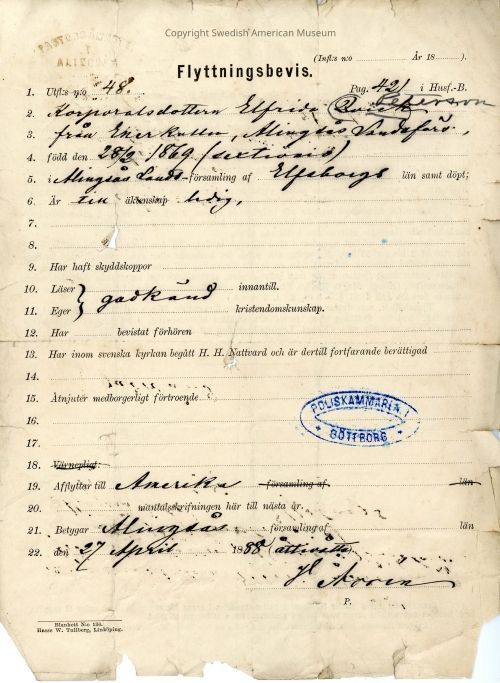 Copyright Swedish American Museum
PASTORSÄMBETET
I
ALINGSÅS
(Infl:s n:o År 18 ).
Flyttningsbevis.
1. Utfl:s n:o 48. Pag. 421 i Husf.-B.
2. Korporalsdottern Elfrida Quick Peterson
3. från Enerkullen, Alingsås Landsförs.,
4. född den 28/2 1869 (sextionio)
5. i Alingsås Lands-församling af Elfsborgs län samt döpt;
6. Är till äktenskap ledig,
7.
8.
9. Har haft skyddskoppor
10. Läser innantill.
godkänd
11. Eger kristendomskunskap.
12. Har bevistat förhören
13. Har inom svenska kyrkan begått H. H. Nattvard och är dertill fortfarande berättigad
14.
15. Åtnjuter medborgerligt förtroende
16.
POLISKAMMAREN I
GÖTEBORG
17.
18. Värnepligt:
19. Afflyttar till Amerika församling af län
20. mantalsskrifningen här till nästa år.
21. Betygar Alingsås församling af län
22. den 27 April 1888 (åttiåtta)
P.
Blankett N:o 136.
Hasse W. Tullberg, Linköping.